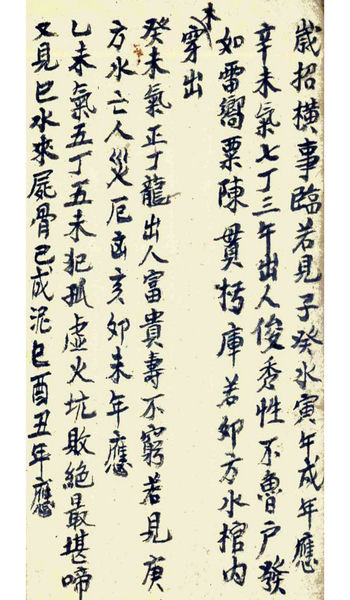 歲招横事臨若見子癸水寅午戌年應
辛未氣七丁三午出人俊秀性不魯戶發
如雷嚮粟陳貫朽庫若卯方水棺内
木穿出
癸未氣正丁龍出人富貴壽不窮若見庚
方水亡人災厄凶亥卯未年應
乙未氣五丁五未犯孤虛火坑敗絕最堪啼
又見巳水來屍骨已成泥巳酉丑年應